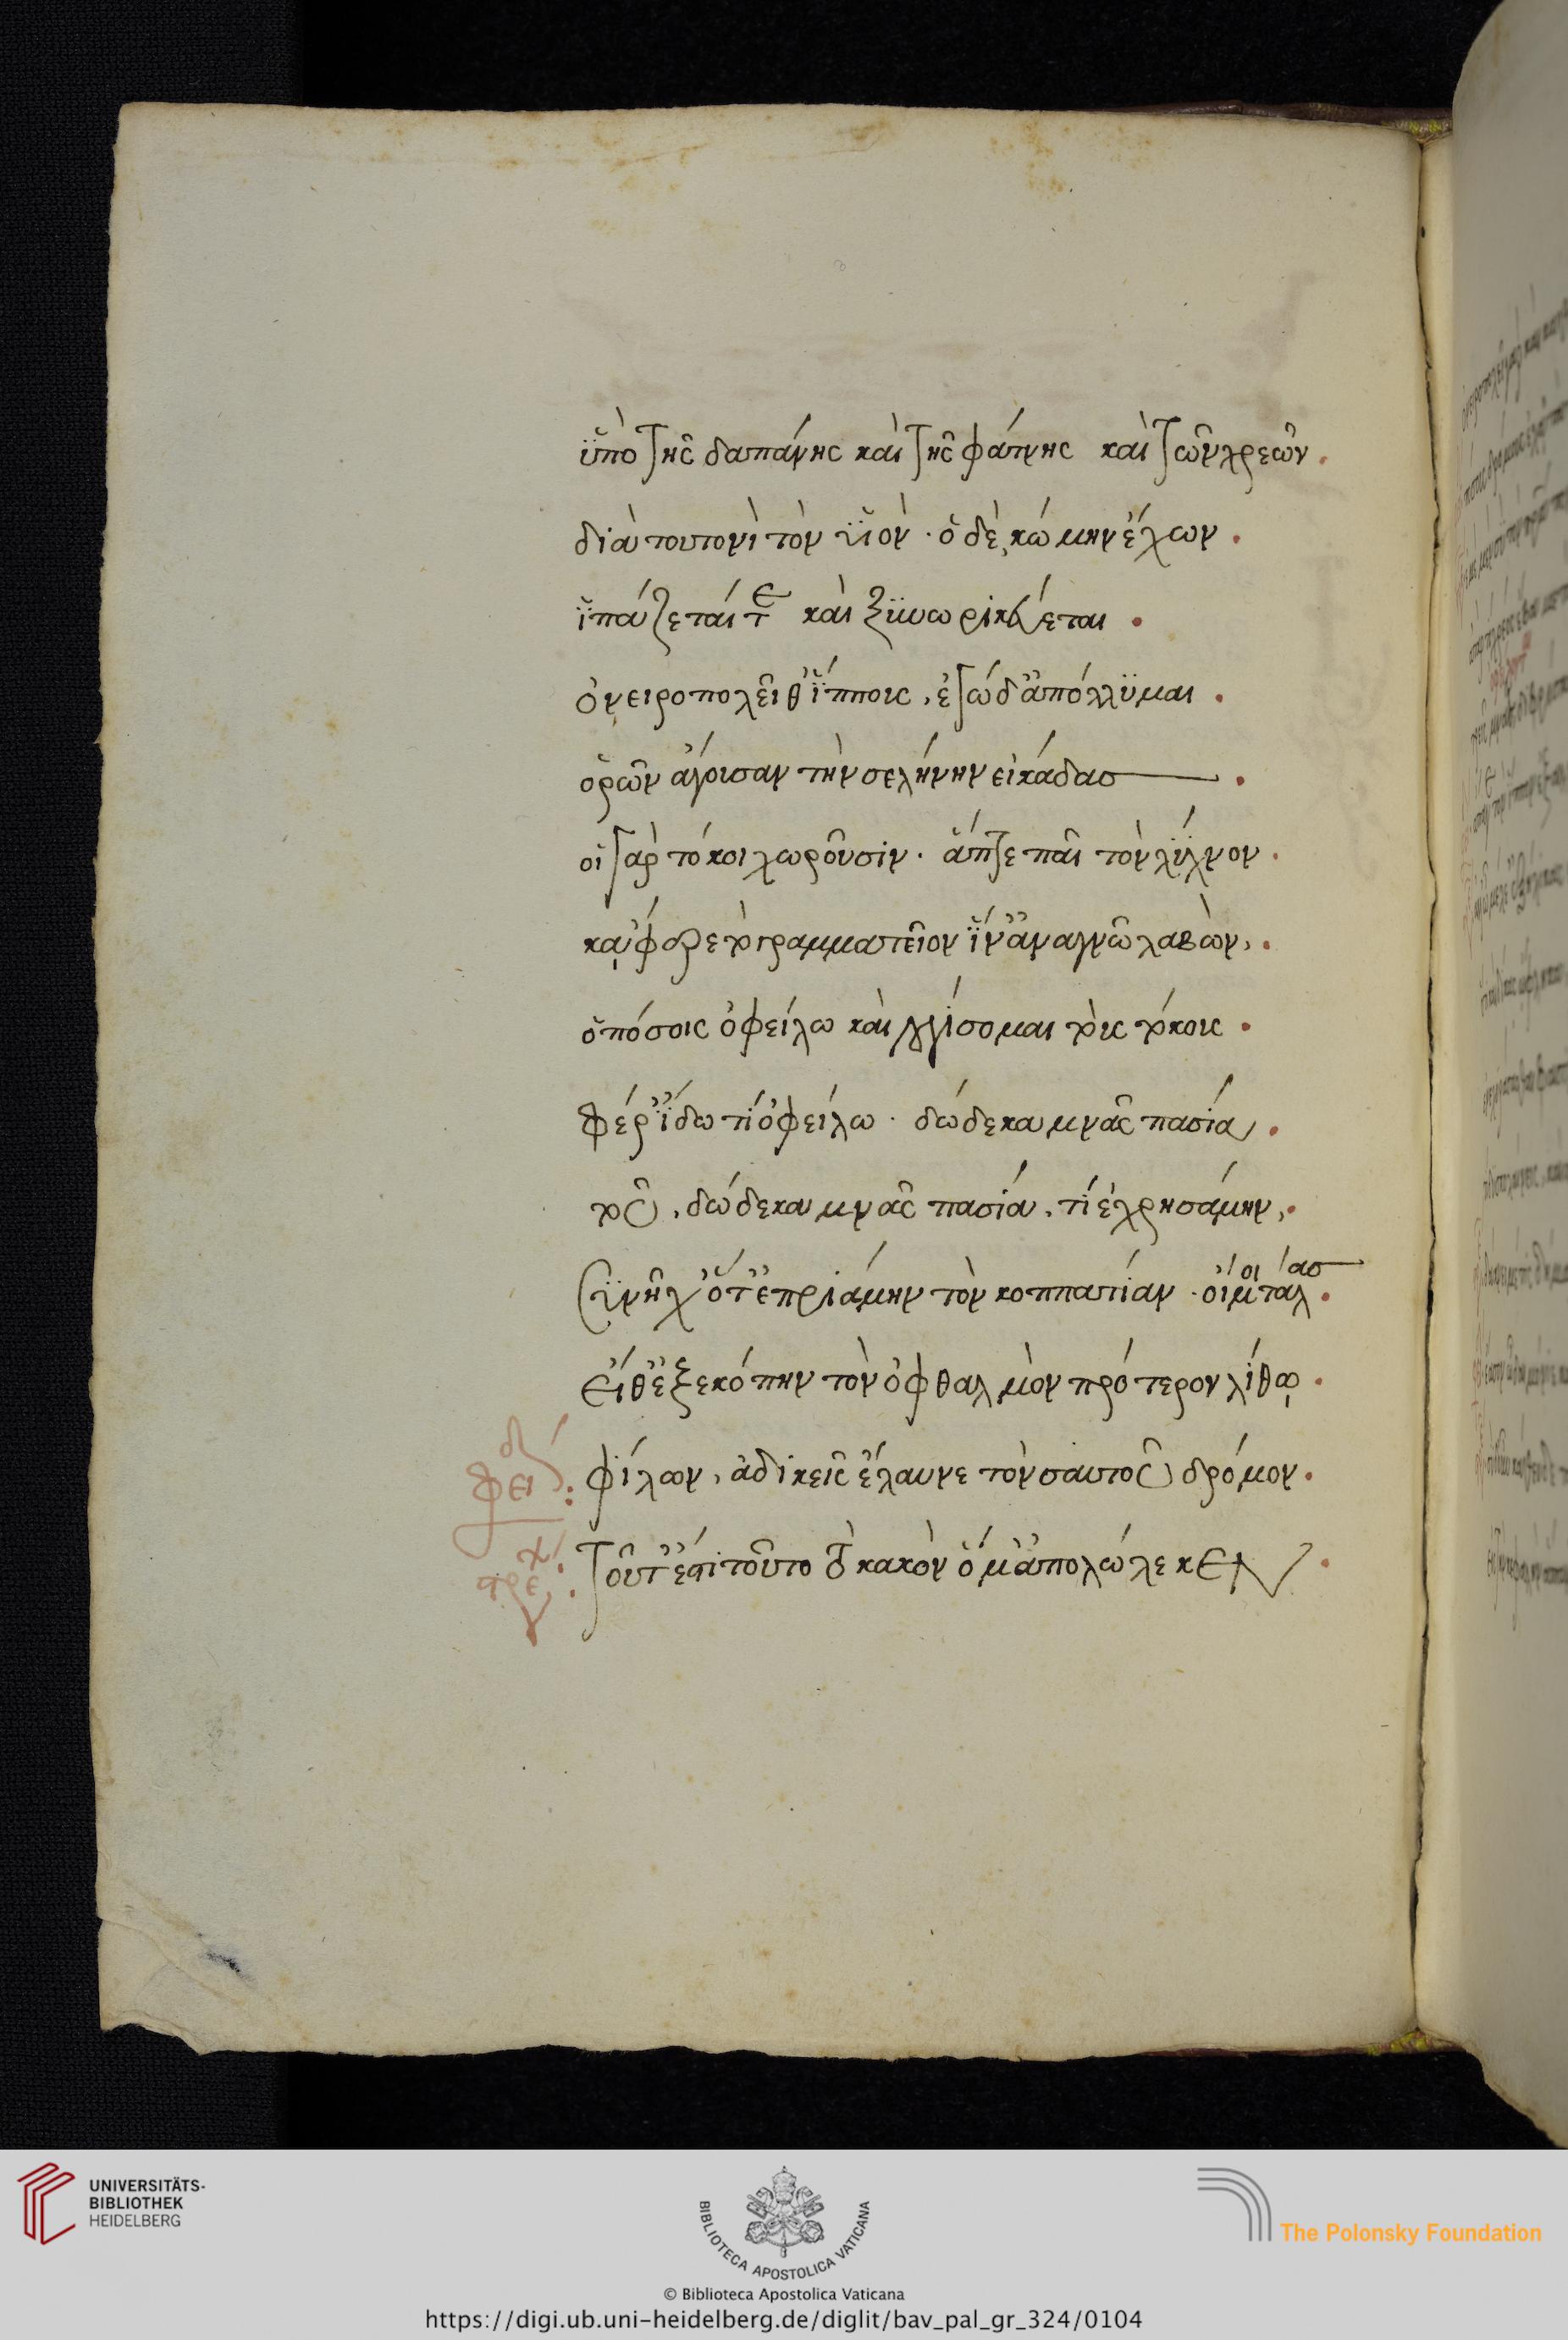 ὑπὸ τῆς δαπάνης καὶ τῆς φάτνης καὶ τῶν χρεῶν.
διὰ τουτονὶ τὸν ϋἱὸν · ὁ δὲ, κώμην ἔχων.
ἱππάζεταί τε καὶ ξυνωρικεύεται.
ὀνειροπολεῖ θ' ἵππους, ἐγὼ δ' ἀπόλλυμαι.
ὁρῶν ἄγουσαν τὴν σελήνην εἰκάδας.
οἱ γὰρ τόκοι χωροῦσιν. ἅπτε παῖ τὸν λύχνον.
κἄκφερε τὸ γραμματεῖον ἵν' ἀναγνῶ λαβὼν,.
ὁπόσοις ὀφείλω καὶ λογίσομαι τοὺς τόκους.
φέρ' ἴδω τί ὀφείλω · δώδεκα μνᾶς πασία.
τοῦ, δώδεκα μνᾶς πασία, τί ἐχρησάμην,.
ὅτ' ἐπριάμην τὸν κοππατίαν · οἴμοι τάλας.
εἴθ' ἐξεκόπην τὸν ὀφθαλμὸν πρότερον λίθῳ.
φειδ: φίλων, ἀδικεῖς ἔλαυνε τὸν σαυτοῦ δρόμον.
στρε: τοῦτ' ἔστι τοῦτο τὸ κακὸν ὅ μ' ἀπολώλεκεν.
UNIVERSITÄTS-
BIBLIOTHEK
HEIDELBERG
BIBLIOTECA APOSTOLICA VATICANA
© Biblioteca Apostolica Vaticana
The Polonsky Foundation
https://digi.ub.uni-heidelberg.de/diglit/bav_pal_gr_324/0104